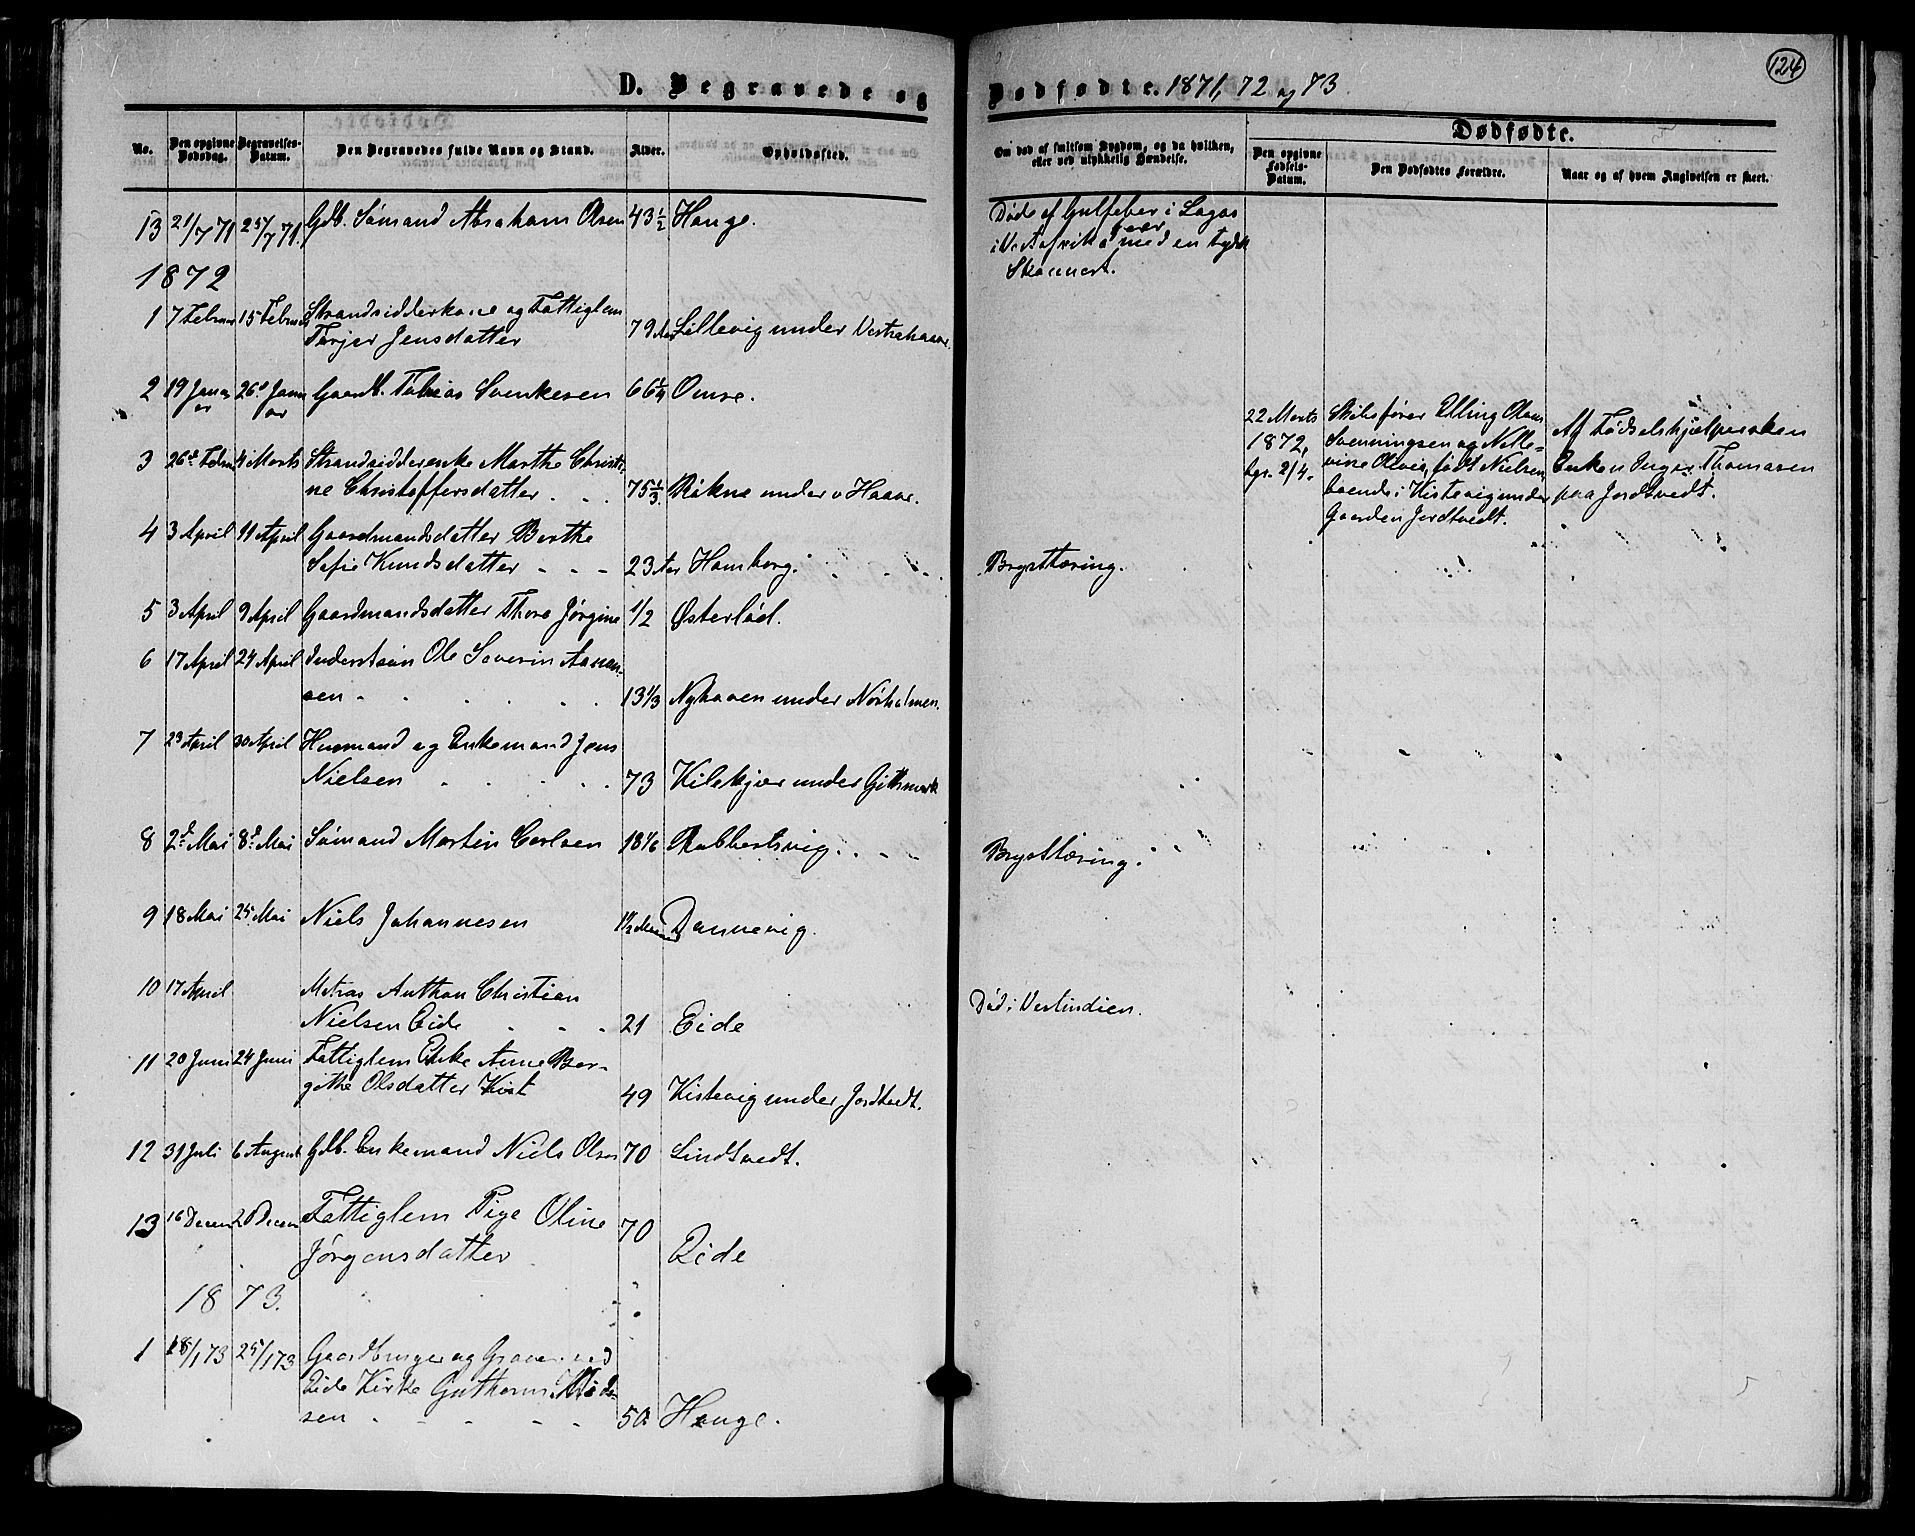 124
D. Begravede og Dødfødte. 1871, 72 og 73.
No.
Den opgivne Dødsdag.
Begravelses-Datum.
Den Begravedes fulde Navn og Stand.
Alder.
Opholdssted.
Om død af smitsom Sygdom, og da hvilken, eller ved ulykkelig Hændelse.
Dødfødte.
Den opgivne Fødsels-Datum.
Den Dødfødtes Forældre.
Naar og af hvem Angivelsen er skeet.
13 21/7 71 25/7 71. Gdb. Sømand Abraham Olsen 43 1/2 Hauge.
Døde af Gulfeber i Lagos
i Vestafrika med en tydsk
Skonnert.
1872
1 7 Februar 15 Februar Strandsidderkone og Fattiglem
Terjer Jensdatter 79 Aar Lillevig under Vestrehaave.
2 19 Januar 26d Januar Gaardb. Tobias Svenkesen 66 1/4 Omre.
22 Marts
1872,
bgr. 2/4.
Skibsfører Elling Olaus
Svenningsen og Nelle-
vine Olivia, født Nielsen,
boende i Kistevig under
Gaarden Jordtvedt.
Af Fødselshjælpersken
Enken Inger Thomasen
paa Jordtvedt.
3 26d Febru 4 Marts Strandsidderenke Marthe Christi-
ne Christoffersdatter . . 75 1/3 Røkne under v Haave.
4 3 April 11 April Gaardmandsdatter Berthe
Sofie Knudsdatter - - - 23 Aar Homborg.
Brysttæring.
5 3 April 9 April Gaardmandsdatter Thora Jørgine 1/2 Østerlød.
6 17 April 24 April Inderstsøn Ole Severin Aanon-
sen - 13 1/3 Nyhaven under Nørholmen.
7 23 April 30 April Husmand og Enkemand Jens
Nielsen 73 Kilekjær under Gitmark
8 2d Mai 8d Mai Sømand Martin Carlsen 18 1/6 Rabbersvig.
Brysttæring.
9 18 Mai 25 Mai Niels Johannesen 1 1/2 Maaned Dannevig.
10 17 April Matros Anthon Christian
Nielsen Eide 21 Eide
Død i Vestindien.
11 20 Juni 24 Juni Fattiglem Enke Anne Ber-
githe Olsdatter Kist 49 Kistevig under Jordtvedt.
12 31 Juli 6 August Gdb. Enkemand Niels Olsen 70 Lindtvedt.
13 16 Decem 20 Decem Fattiglem Pige Oline 70
Jørgensdatter Eide
1873.
1 18/1 73 25/1 73 Gaardbruger og Graver ved
Eide Kirke Guthorm Mads-
sen - - - - 50 Hauge.